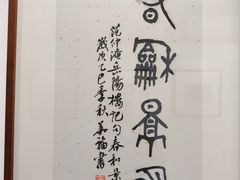 春龢景明
范仲淹岳陽樓記句春和景
歲次乙巳季秋福書